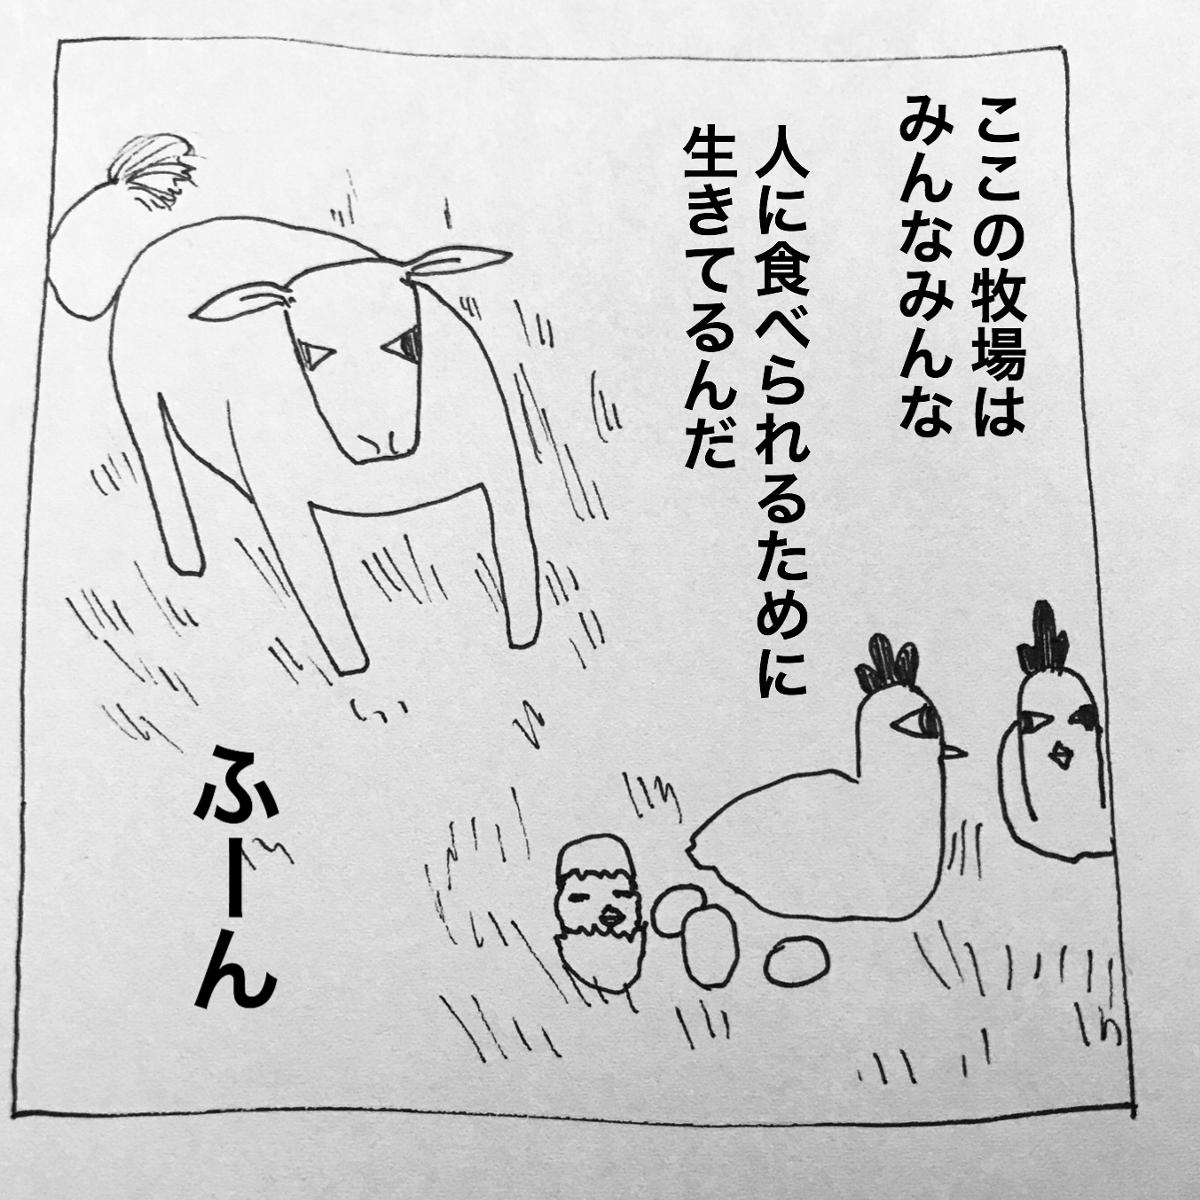 ここの牧場は
みんなみんな
人に食べられるために
生きてるんだ
ふーん